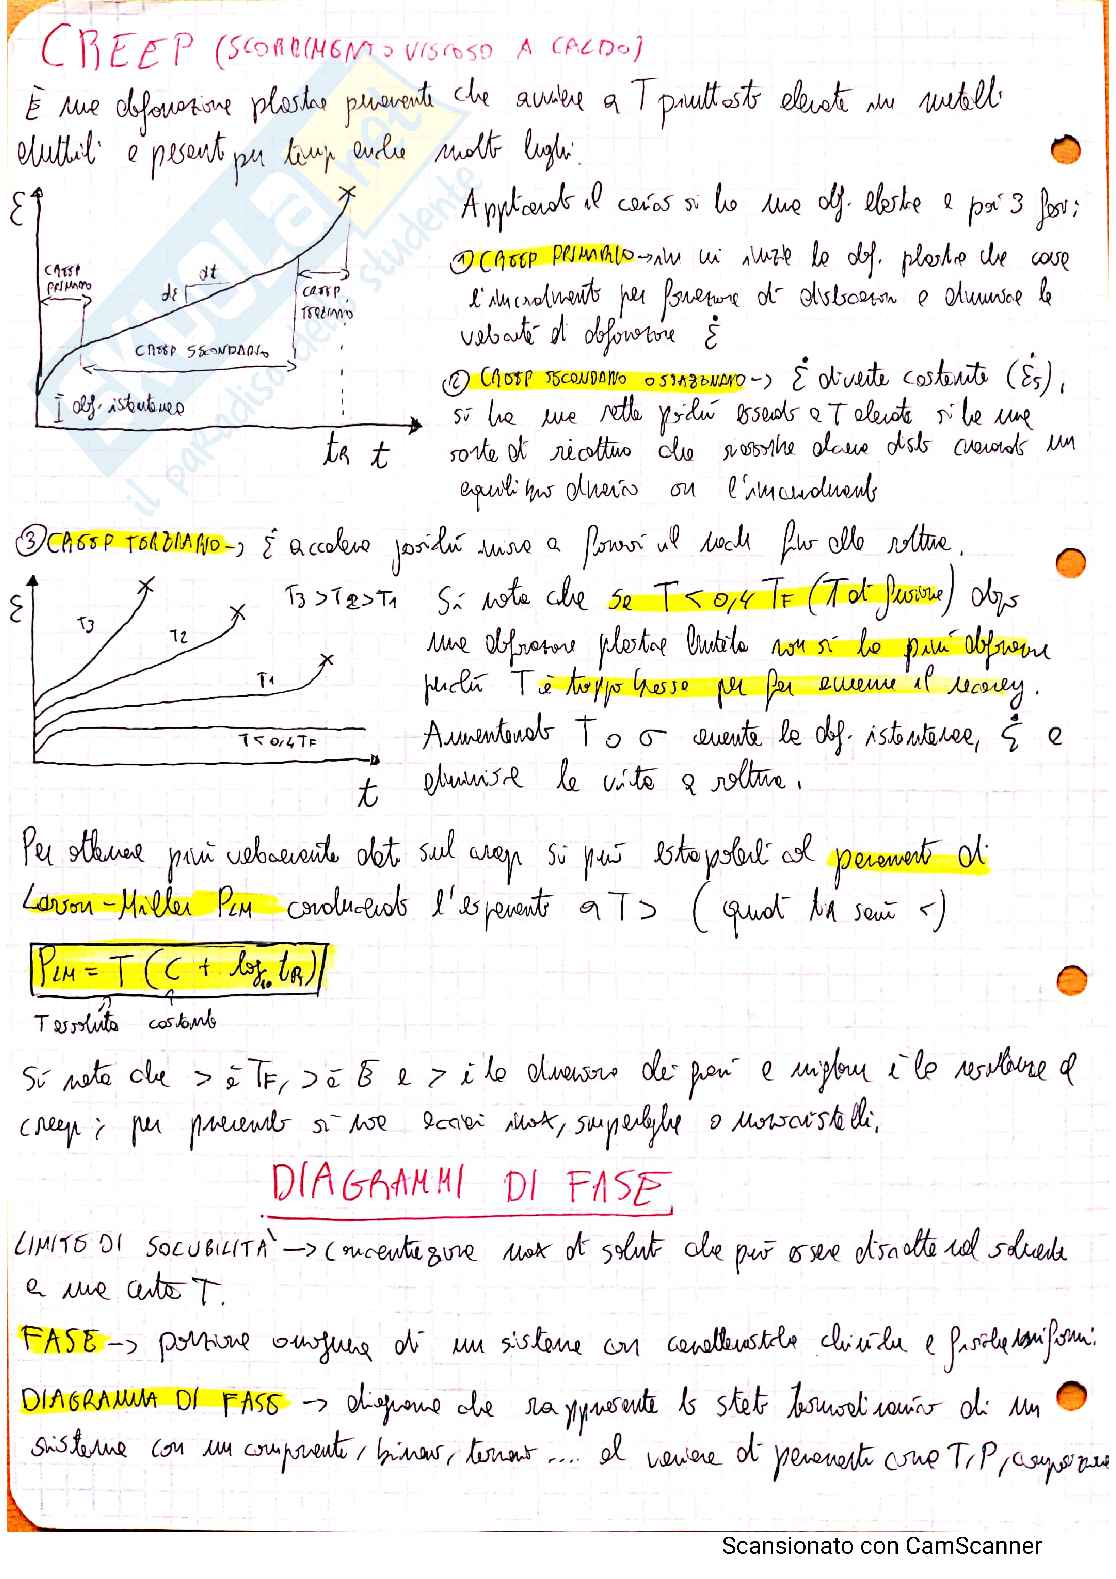 CREEP (SCORRIMENTO VISCOSO A CALDO)
È una deformazione plastica permanente che avviene a T piuttosto elevate in metalli
duttili e presenti per tempi anche molto lunghi.
Applicando il carico si ha una def. elastica e poi 3 fasi:
① CREEP PRIMARIO → in cui inizia la def. plastica che causa
l'incrudimento per formazione di dislocazioni e diminuisce la
velocità di deformazione ε̇
② CREEP SECONDARIO O STAZIONARIO → ε̇ diventa costante (ε̇s),
si ha una retta poiché essendo a T elevate si ha una
sorta di recottura che riassorbe alcune disloc creando un
equilibrio dinamico con l'incrudimento
ε
CREEP
PRIMARIO
dt
dε
CREEP
TERZIARIO
CREEP SECONDARIO
def. istantanea
tR t
③ CREEP TERZIARIO → ε̇ accelera poiché inizia a formarsi il neck fino alla rottura.
ε
T3
T2
T1
T3 > T2 > T1
T < 0,4 TF
t
Si nota che se T < 0,4 TF (T di fusione) dopo
una deformazione plastica limitata non si ha più deformazione
perché T è troppo bassa per far avvenire il recovery.
Aumentando T o σ aumenta la def. istantanea, ε̇ e
diminuisce la vita a rottura.
Per ottenere più velocemente dati sul creep si può estrapolarli col parametro di
Larson-Miller PLM conducendo l'esperimento a T > (quindi tR sarà <)
PLM = T (C + log10 tR)
T assoluta costante
Si nota che > è TF, > è E e > è la dimensione dei grani e migliore è la resistenza al
creep; per prevenirlo si usa acciai inox, superleghe o monocristalli.
DIAGRAMMI DI FASE
LIMITE DI SOLUBILITÀ → Concentrazione max di soluto che può essere disciolta nel solvente
a una certa T.
FASE → porzione omogenea di un sistema con caratteristiche chimiche e fisiche uniformi.
DIAGRAMMA DI FASE → diagramma che rappresenta lo stato termodinamico di un
sistema con un componente, binario, ternario .... al variare di parametri come T, P, composizione
SKUOLA.net
il paradiso dello studente
Scansionato con CamScanner